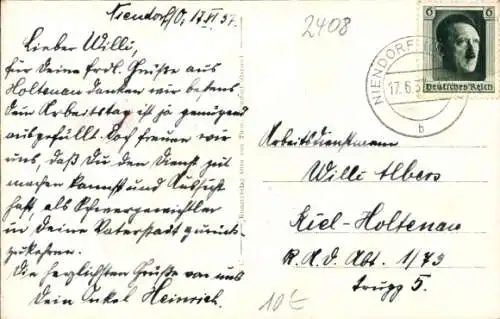 Niendorf/O, 17.VI 37.
2408
Lieber Willi,
für Deine frdl. Grüße aus
Holtenau danken wir bestens
Dein Arbeitstag ist ja genügend
ausgefüllt. Doch freuen wir
uns, daß Du den Dienst gut
machen kannst und Aussicht
hast, als Schwergewichtler
in Deine Vaterstadt zurück-
zukehren.
Die herzlichsten Grüße von uns
Dein Onkel Heinrich.
6 6
Deutsches Reich
NIENDORF
17.6.3
b
Arbeitsdienstmann
Willi Albers
Kiel-Holtenau
R.A.D. Abt. 1/73
Trupp 5.
10€